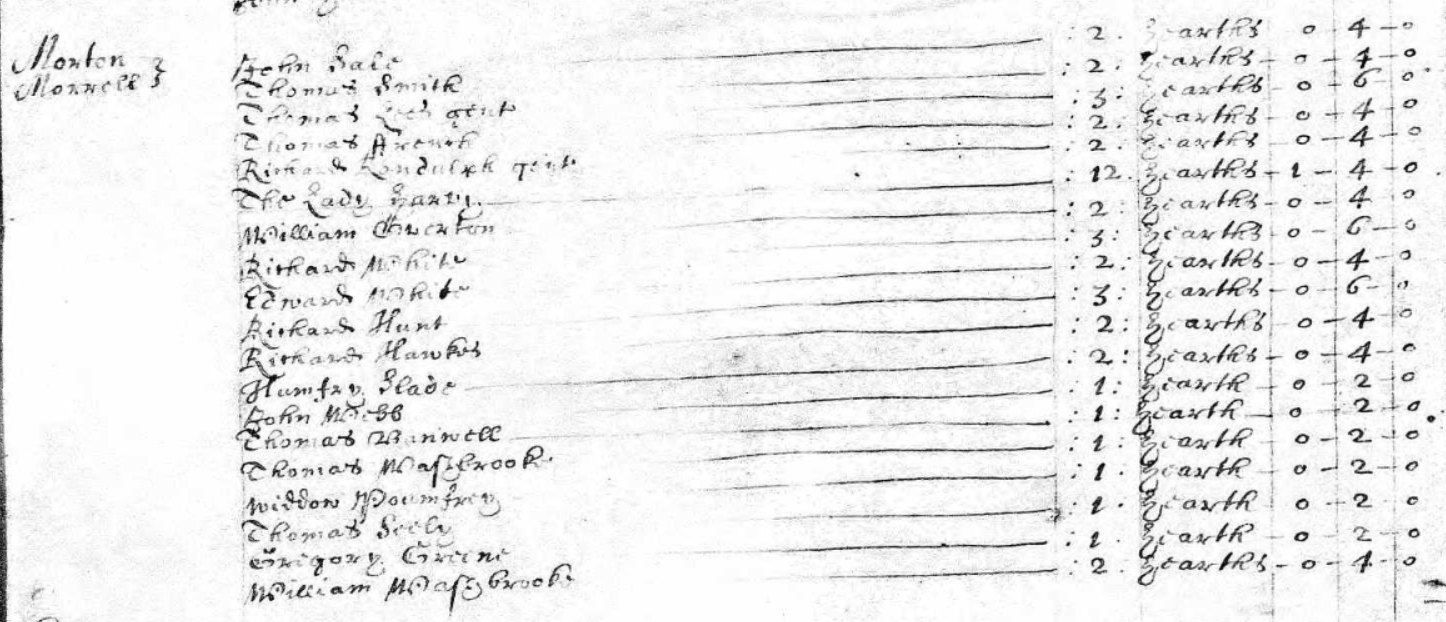 Morton } John Sale : 2 . hearths o - 4 - o
Morrell } Thomas Smith : 2 : hearths - o - 4 - o
Thomas Lees gent : 3 : hearths - o - 6 - o
Thomas : 2 . hearths - o - 4 - o
Richard Randulph gent : 2 . hearths - o - 4 - o
The Lady Harvy : 12 . hearths - 1 - 4 - o
William Overton : 2 : hearths - o - 4 - o
Richard White : 3 : hearths - o - 6 - o
Edward White : 2 : hearths - o - 4 - o
Richard Hunt : 3 : hearths - o - 6 - o
Richard Hawkes : 2 : hearths o - 4 - o
Humfry Slade : 2 : hearths - o - 4 - o
John Webb : 1 : hearth - o - 2 - o
Thomas Banwell : 1 : hearth - o - 2 - o
Thomas Washbrooke : 1 . hearth - o - 2 - o
Widdow Poumfrey : 1 . hearth o - 2 - o
Thomas Seely : 1 . hearth o - 2 - o
Gregory Greene : 1 . hearth - o - 2 - o
William Washbrooke : 2 . hearths - o - 4 - o